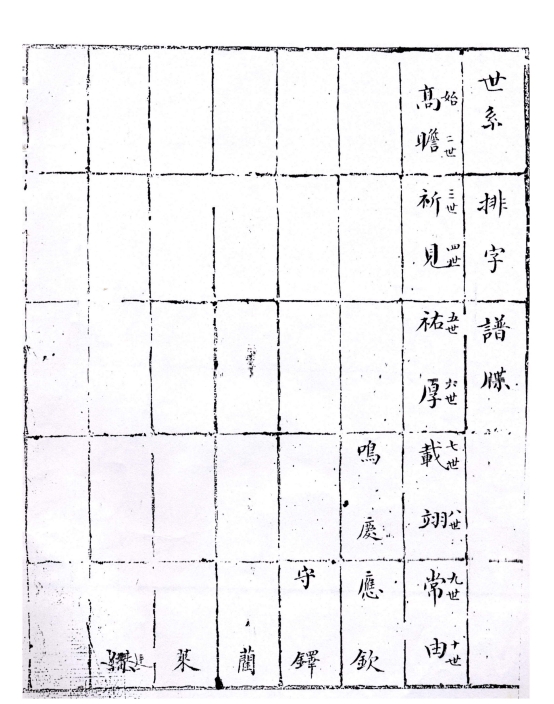 世系排字譜牒
始高二世瞻三世祈四世見五世祐六世厚七世載八世翊九世常十世由
鳴慶應欽
守鐸
藺
萊